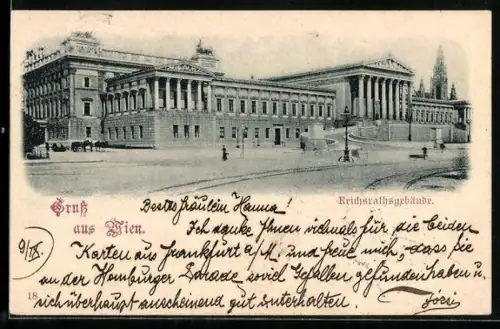 Reichsrathsgebäude.
Gruß
aus Wien.
9/IX.
Bestes Fräulein Hanna!
Ich danke Ihnen vielmals für die beiden
Karten aus Frankfurt a/M. und freue mich, dass Sie
an der Homburger Parade soviel Gefallen gefunden haben u.
sich überhaupt anscheinend gut unterhalten.
18